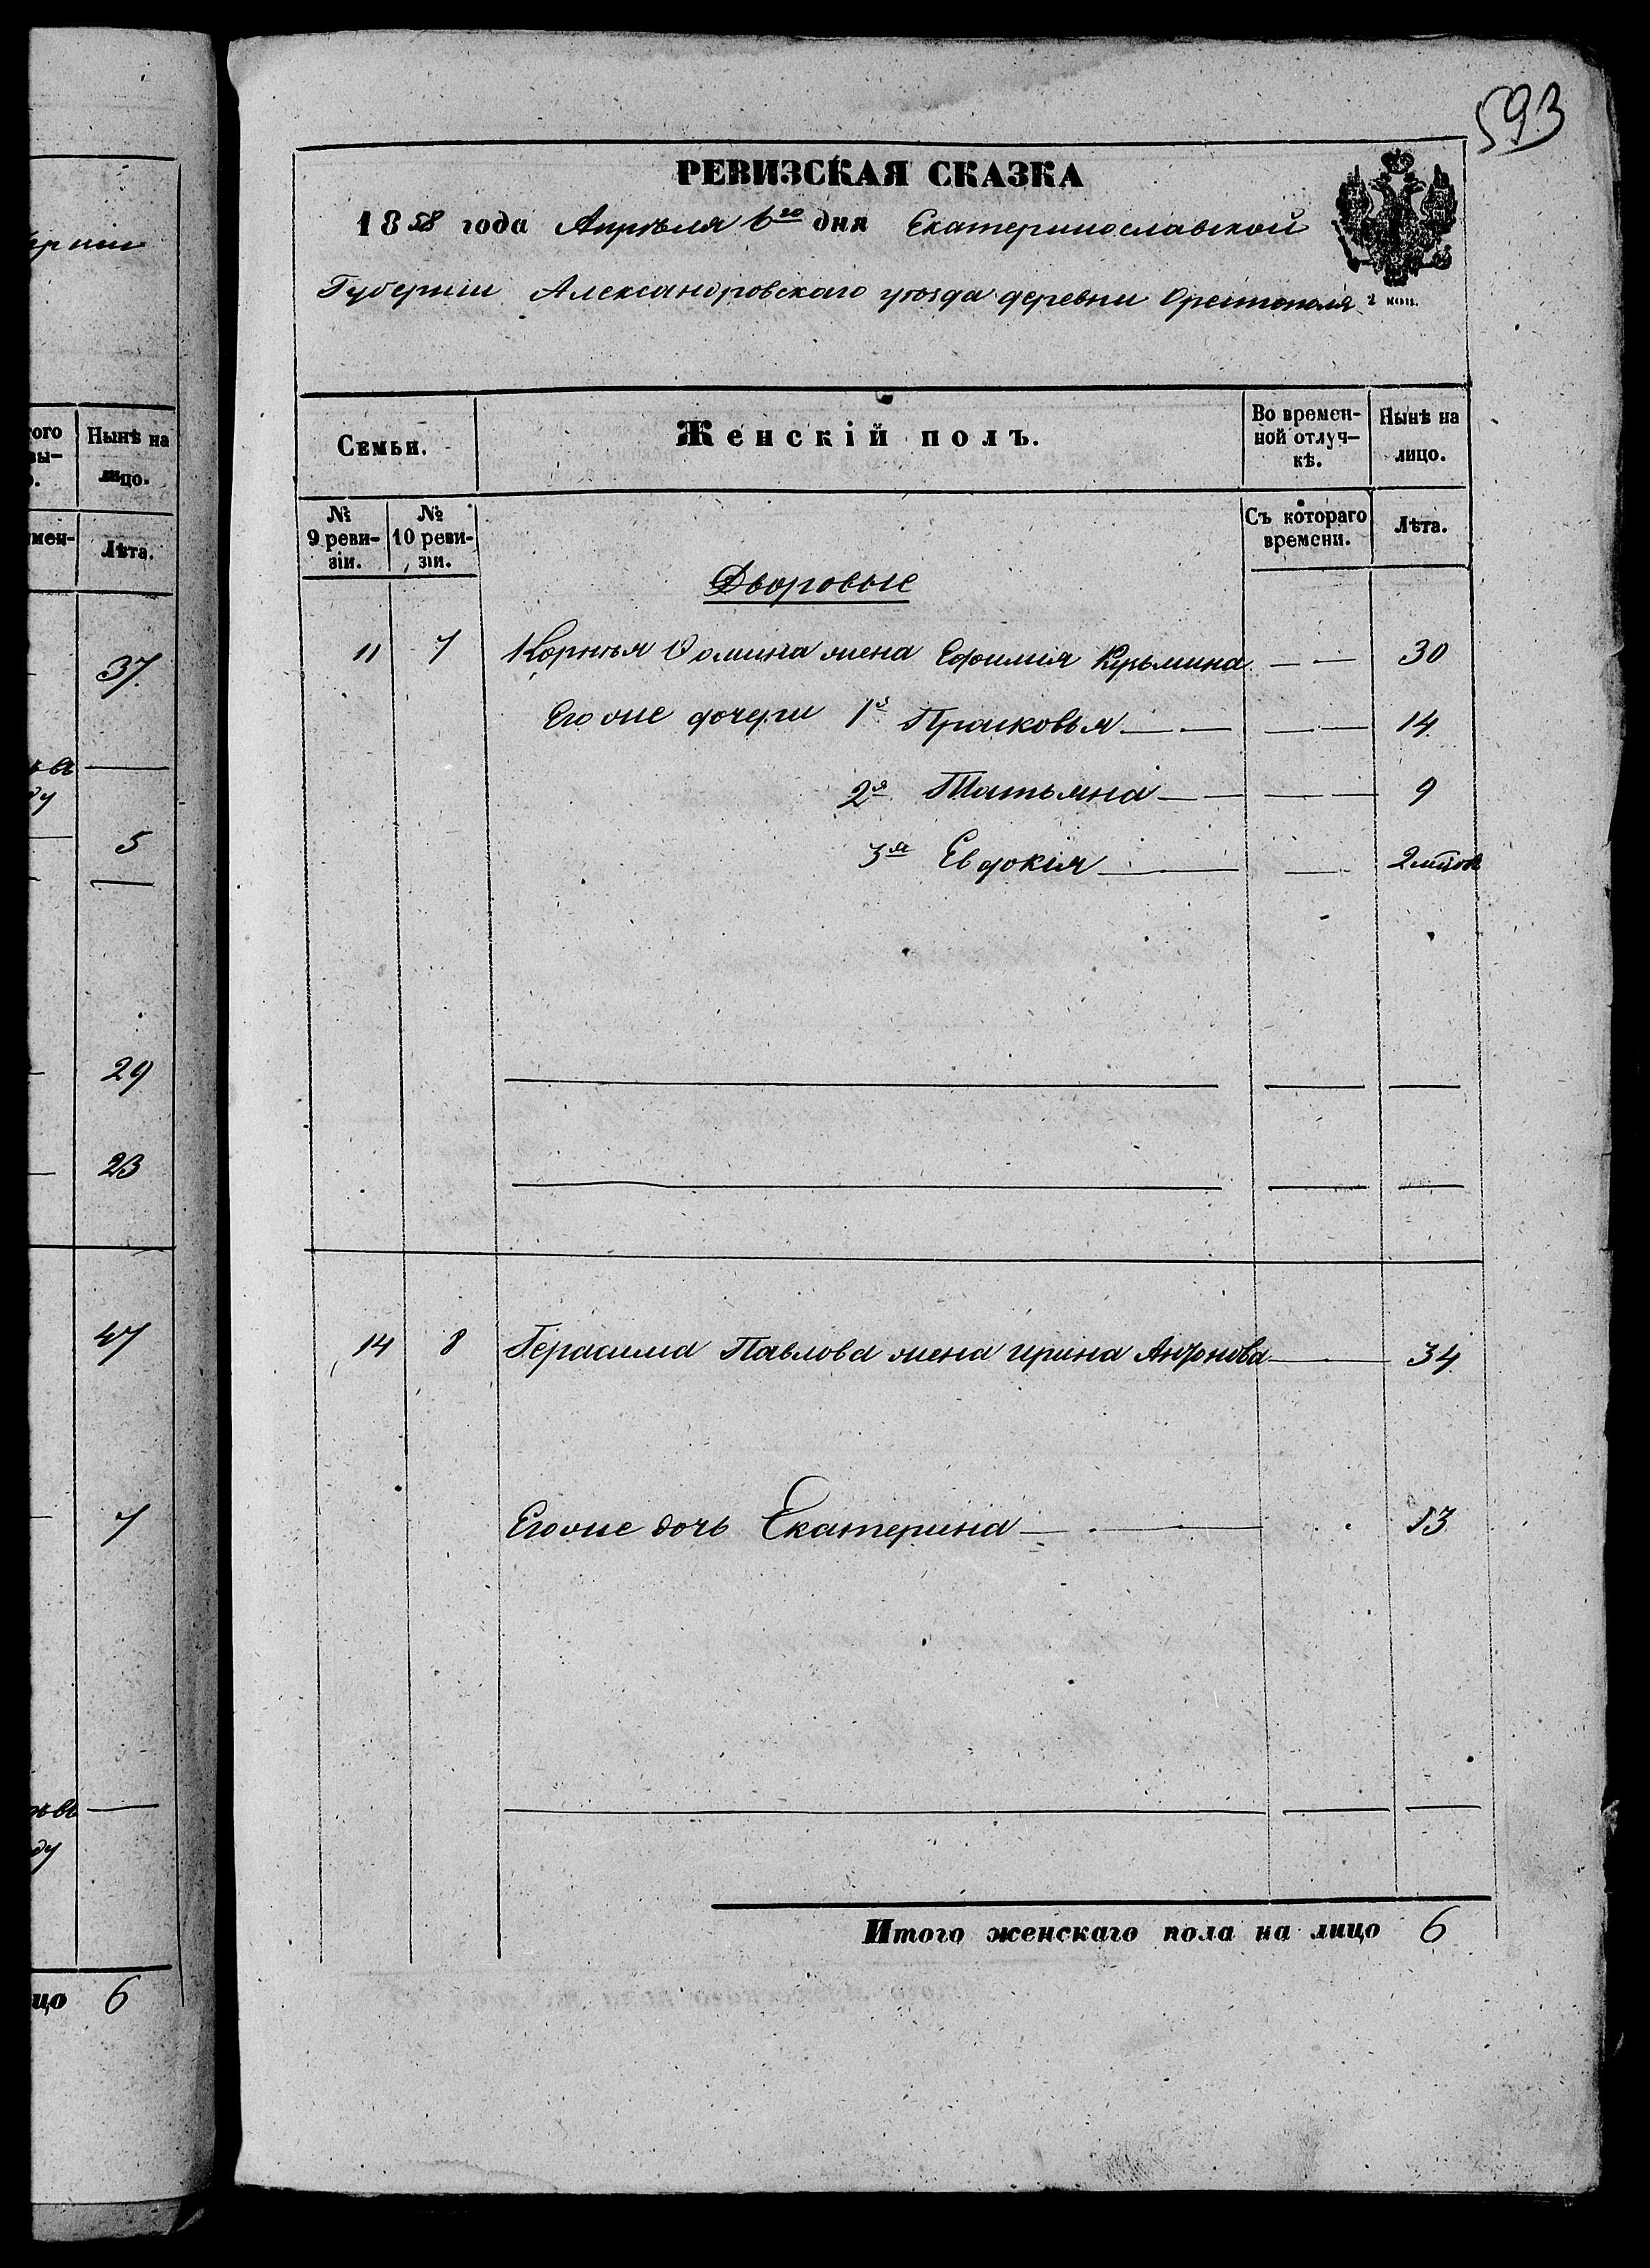 593
РЕВИЗСКАЯ СКАЗКА
1858 года Апрѣля 6го дня Екатеринославской
Губерніи Александровскаго уѣзда деревни Орестополя 2 коп.
Семьи.
Женскій полъ.
Во времен-
ной отлуч-
кѣ.
Нынѣ на
лицо.
№
9 реви-
зіи.
№
10 реви-
зіи.
Съ котораго
времени.
Лѣта.
Дворовые
11 7 Корнѣя Фомина жена Ефимія Кузьмина 30
Его же дочери 1я Прасковья 14
2я Татьяна 9
3я Евдокія 2
14 8 Герасима Павлова жена Ирина Антонова 34
Его же дочь Екатерина 13
Итого женскаго пола на лицо 6
ого
вы-
Нынѣ на
лицо.
мен-
Лѣта.
37
5
29
23
47
7
цо 6